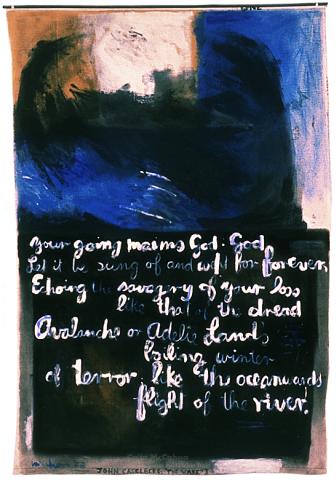 your going maims God. God
Let it be sung of and wept for forever
Echoing the savagery of your loss
like that of the dread
Avalanche or Adelie Lands
boiling winter
of terror. like the oceanwards
flight of the river.
JOHN CASELBERG. THE WAKE